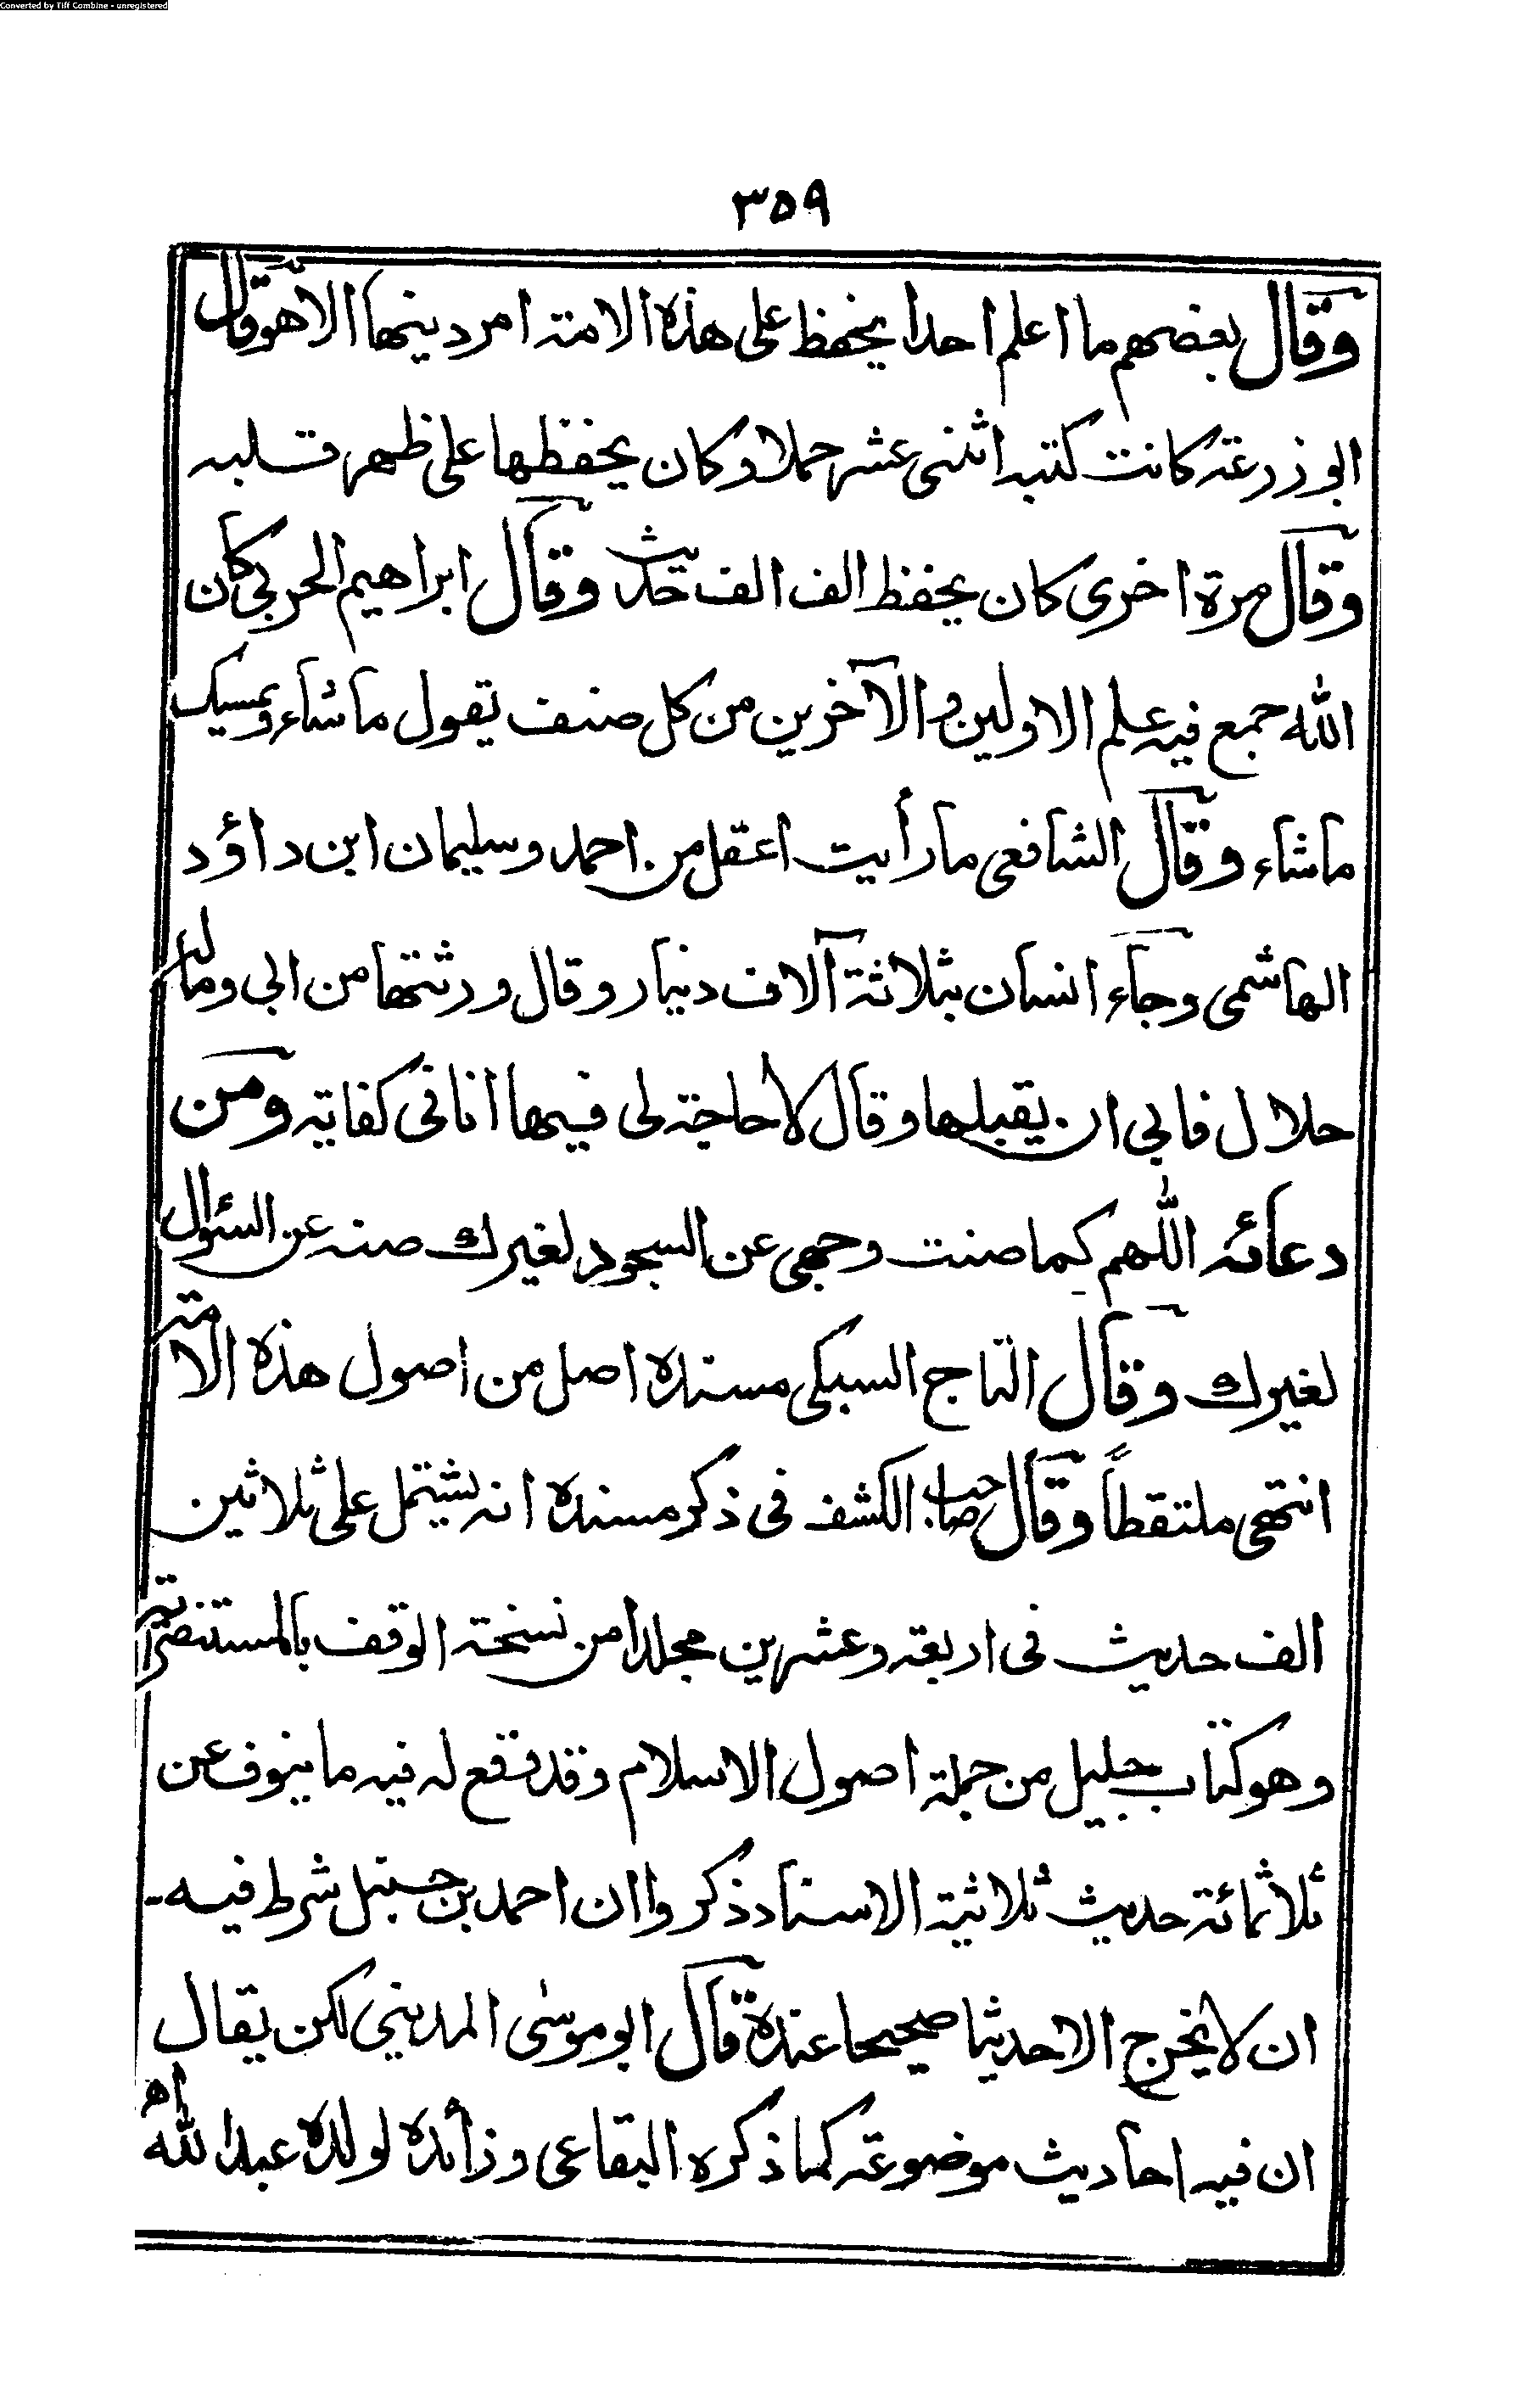 Converted by Tiff Combine - unregistered
٣٥٩
وقال بعضهم ما اعلم احدا يحفظ على هذه الامة امر دينها الا هو وقال
ابو زرعة كانت كتبه اثنى عشر حملا وكان يحفظها على ظهر قلبه
وقال مرة اخرى كان يحفظ الف الف حديث وقال ابراهيم الحربي كان
الله جمع فيه علم الاولين والآخرين من كل صنف يقول ما شاء ويمسك
ما شاء وقال الشافعى ما رأيت اعقل من احمد وسليمان ابن داؤد
الهاشمى وجاء انسان بثلاثة آلاف دينار وقال ورثتها من ابى وماله
حلال فابى ان يقبلها وقال لا حاجة لى فيها انا فى كفاية ومن
دعائه اللهم كما صنت وجهى عن السجود لغيرك صنه عن السئوال
لغيرك وقال التاج السبكى مسنده اصل من اصول هذه الامة
انتهى ملتقطاً وقال صاحب الكشف فى ذكر مسنده انه يشتمل على ثلاثين
الف حديث فى اربعة وعشرين مجلدا من نسخة الوقف بالمستنصرية
وهو كتاب جليل من جملة اصول الاسلام وقد وقع له فيه ما ينوف عن
ثلاثمائة حديث ثلاثية الاسناد ذكروا ان احمد بن حنبل شرط فيه
ان لا يخرج الا حديثا صحيحا عنده قال ابو موسى المديني لكن يقال
ان فيه احاديث موضوعة كما ذكره البقاعى وزائده لولده عبد الله اه